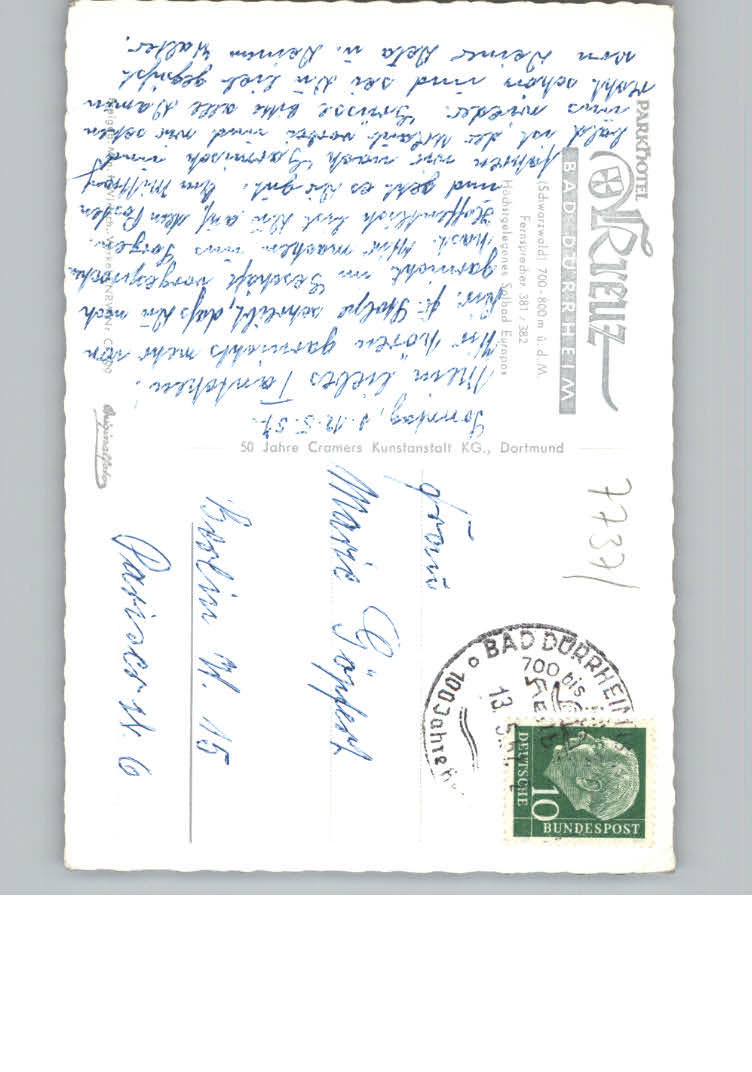 PARKHOTEL
Kreuz
BAD DÜRRHEIM
(Schwarzwald) 700-800 m ü. d. M.
Fernsprecher 381 / 382
Höchstgelegenes Solbad Europas
Sonntag, d. 12.5.57.
Mein liebes Tantchen!
Wir hören garnichts mehr von
Dir. Fr. Stolpe schreibt, daß Du noch
garnicht im Geschäft vorgesprochen
hast. Wir machen uns Sorgen.
Hoffentlich bist Du auf dem Posten
und geht es Dir gut. Am Mittwoch
fahren wir nach Garmisch und
bald ist der Urlaub vorbei und wir sehen
uns wieder. Grüsse bitte alle Damen
schön und sei Du lieb gegrüßt
von Deiner Deta u. Deinem Walter.
50 Jahre Cramers Kunstanstalt KG., Dortmund
Originalfoto
7737/
BAD DÜRRHEIM
700 bis
13.
DEUTSCHE
BUNDESPOST
10
Frau
Marie Göppert
Berlin W. 15
Pariser str. 6